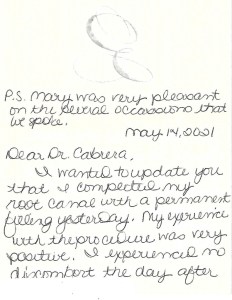 P.S. Mary was very pleasant
on the several occassions that
we spoke.
May 14, 2021
Dear Dr. Cabrera,
I wanted to update you
that I completed my
root canal with a permanent
filling yesterday. My experience
with the procedure was very
positive. I experienced no
discomfort the day after